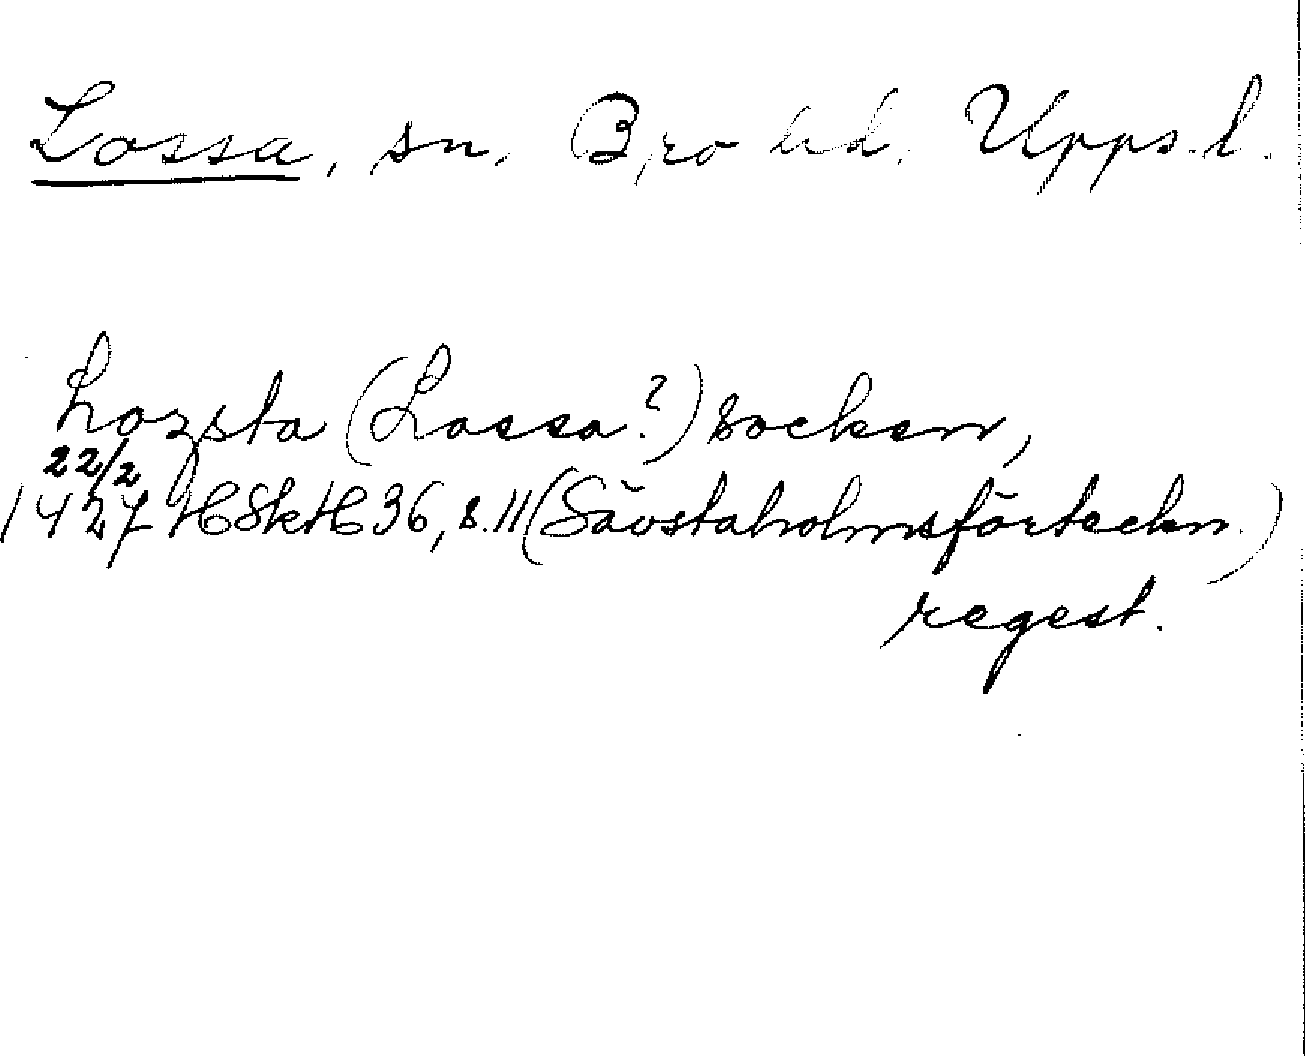 Lossa, sn, Bro hd. Upps. l.
Lozsta (Lossa?) socken,
22/2
1427 HSkH 36, s. 11 (Sävstaholmsförteckn.)
regest.